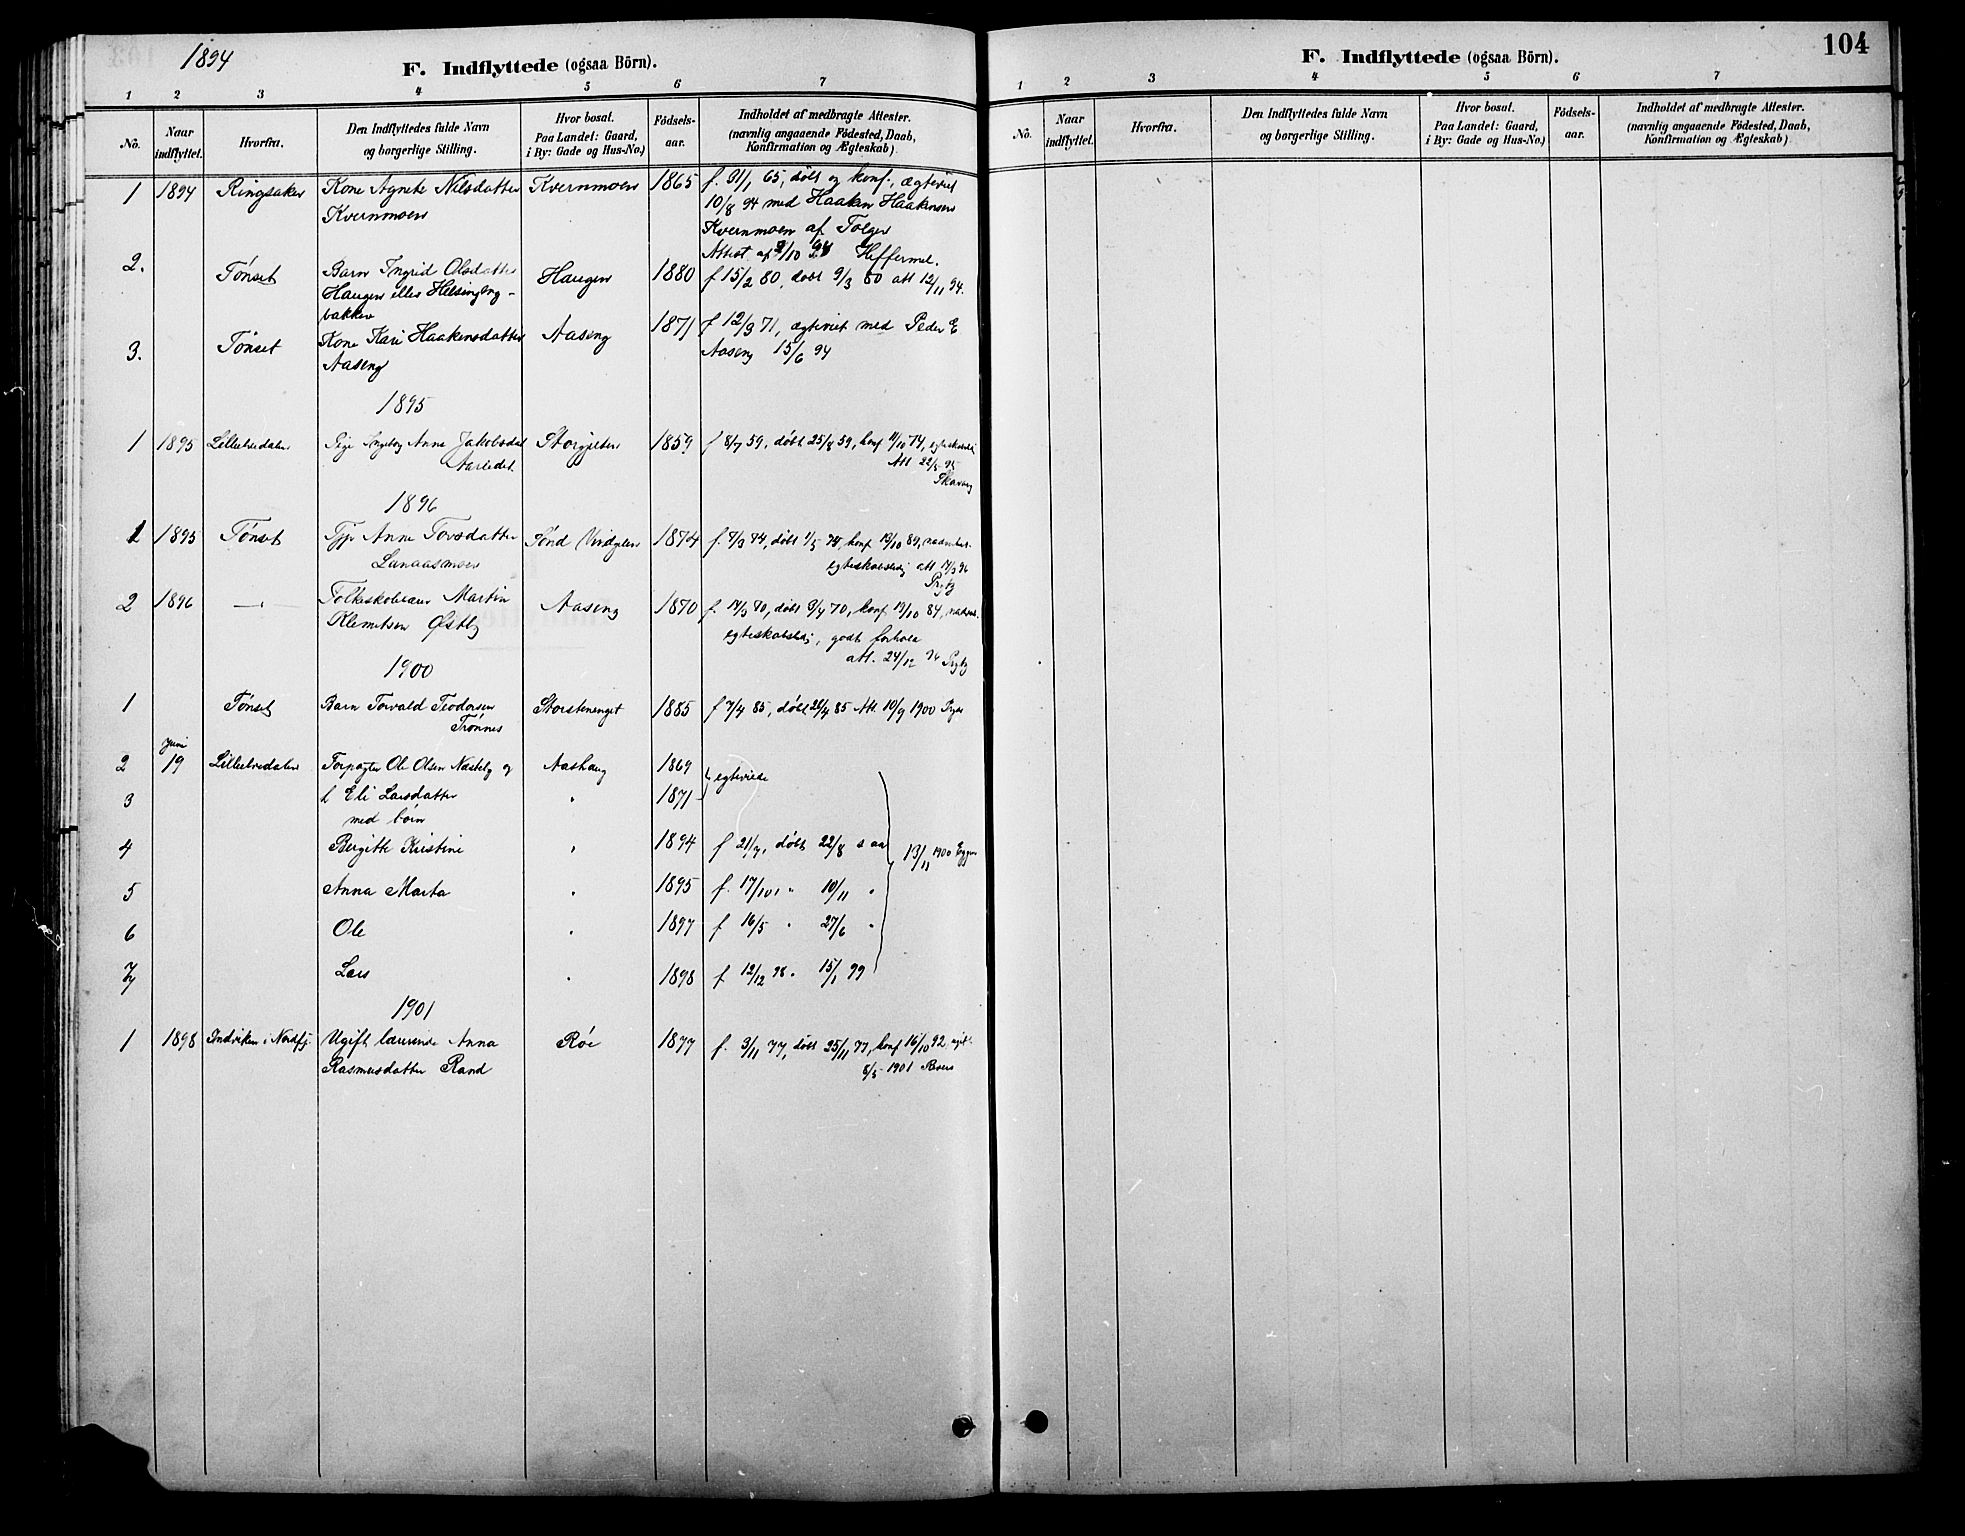 1894
F. Indflyttede (ogsaa Börn).
1 2 3 4 5 6 7
No.
Naar indflyttet.
Hvorfra.
Den Indflyttedes fulde Navn
og borgerlige Stilling.
Hvor bosat.
Paa Landet: Gaard,
i By: Gade og Hus-No.)
Födsels-
aar.
Indholdet af medbragte Attester.
(navnlig angaaende Födested, Daab,
Konfirmation og Ægteskab)
1 1894 Ringsaker Kone Agnete Nilsdatter Kvernmoen 1865 f. 31/1 65, döbt og konf., ægteviet
Kvernmoen 10/8 94 med Haaken Haakensen
Kvernmoen af Tolgen
Attest af /10 94
2. Tönset Barn Ingrid Olsdatter Haugen 1880 f 15/2 80, döbt 9/3 80 att 12/11 94.
Haugen eller
bakken
3. Tönset Kone Kari Haakensdatter Aaseng 1871 f 12/3 71, ægteviet med Peder E
Aaseng Aaseng 15/6 94
1895
1 1895 Lilleelvedalen Pige Ingeborg Anna Jakobsdat 1859 f 8/7 59, döbt 25/8 59, konf 11/10 74,
Att 22/5 95
1896
1 1895 Tönset Anne Torsdatter 1874 f. 7/3 74, döbt 1/5 74, konf 13/10 89,
Lunaasmoen att 14/3 96
2 1896 —"— Folkeskolelærer Martin Aaseng 1870 f. 14/3 70, döbt 9/4 70, konf 19/10 84,
Klemetsen Østby godt forhold
att. 24/12 96
1900
1 Tönset Barn Torvald Teodorsen Storstenenget 1885 f 7/4 85, döbt 26/4 85 Att. 10/9 1900
Trönnes
Juni
2 19 Lilleelvedalen Ole Olsen og Aashaug 1869 egteviede
3 h Eli Larsdatter " 1871
med börn
4 Bergitte Kristine " 1894 f 21/7, döbt 22/8 s aar 13/11 1900
5 Anna Marta " 1895 f. 17/10, " 10/11 "
6 Ole " 1897 f 16/5 " 27/6 "
7 Lars " 1898 f 12/12 98 " 15/1 99
1901
1 1898 Indviken i Nordfj. Ugift lærerinde Anna Röe 1877 f. 3/11 77, döbt 25/11 77, konf 16/10 92,
Rasmusdatter Rand 8/5 1901
104
F. Indflyttede (ogsaa Börn).
1 2 3 4 5 6 7
No.
Naar
indflyttet.
Hvorfra.
Den Indflyttedes fulde Navn
og borgerlige Stilling.
Hvor bosat.
Paa Landet: Gaard,
i By: Gade og Hus-No.)
Födsels-
aar.
Indholdet af medbragte Attester.
(navnlig angaaende Födested, Daab,
Konfirmation og Ægteskab)